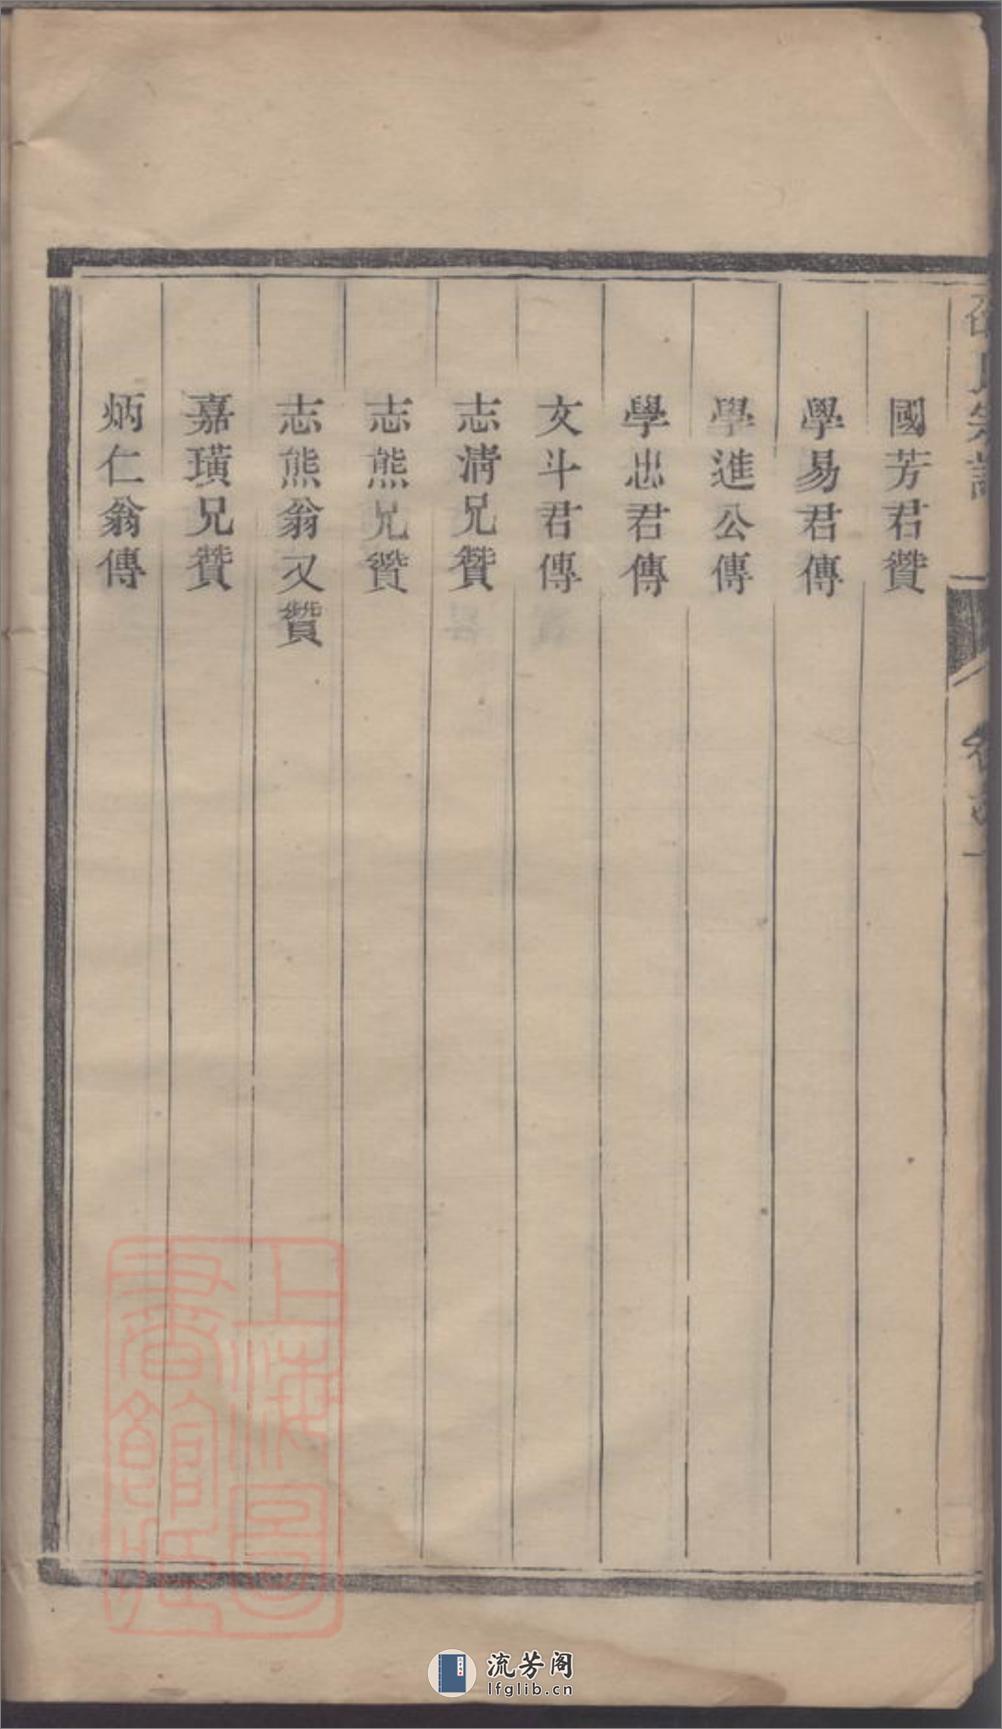 國芳君贊
學易君傳
學進公傳
學忠君傳
文斗君傳
志清兄贊
志熊兄贊
志熊翁又贊
嘉璜兄贊
炳仁翁傳
氏宗譜
上海圖書館藏
流芳阁
lfglib.cn